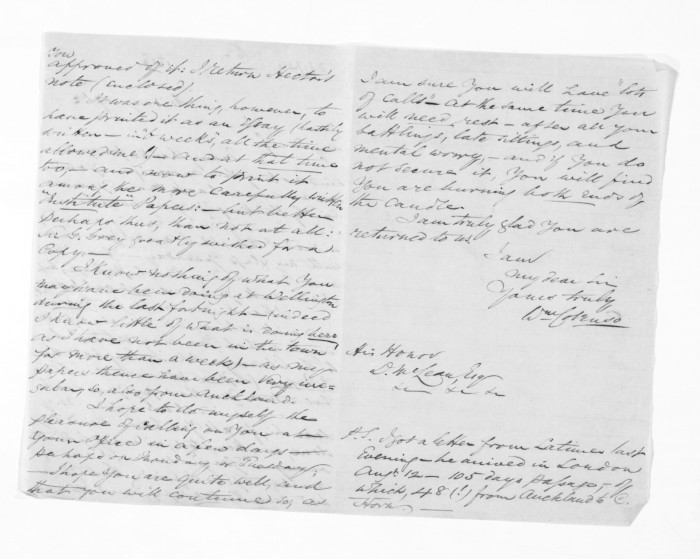 You
approves of it: I return Hector's
note (enclosed).
It was one thing, however, to
have printed it as an Essay, (hastily
written – in "6 weeks", all the time
allowed me!) – and at that time
too, – and now to print it
among the more carefully written
"Institute" Papers: – but better
perhaps thus, than not at all:
Sir G. Grey greatly wished for a
Copy. –
I know nothing of what You
may have been doing at Wellington
during the last fortnight – (indeed
I know little of what is doing here,
as I have not been in the town
for more than a week) – as my
papers thence have been very irre-
gular, so, also from Auckland.
I hope to do myself the
pleasure of calling on You at
Your office in a few days –
perhaps on Monday, or Tuesday:
– I hope You are quite well, and
that you will continue so; as
I am sure You will have "lots
of calls" – at the same time You
will need rest – after all your
battlings, late sittings, and
mental worry, – and if You do
not secure it, You will find
You are burning both ends of
the candle.
I am truly glad You are
returned to us.
I am
My dear Sir
Yours truly
Wm Colenso
His Honor
D. McLean, Esq
&c &c &c
P.S. I got a letter from Latimer last
Evening – he arrived in London
Augt. 12 – 105 days passage, – of
which, 48 (!) from Auckland to C.
Horn. –